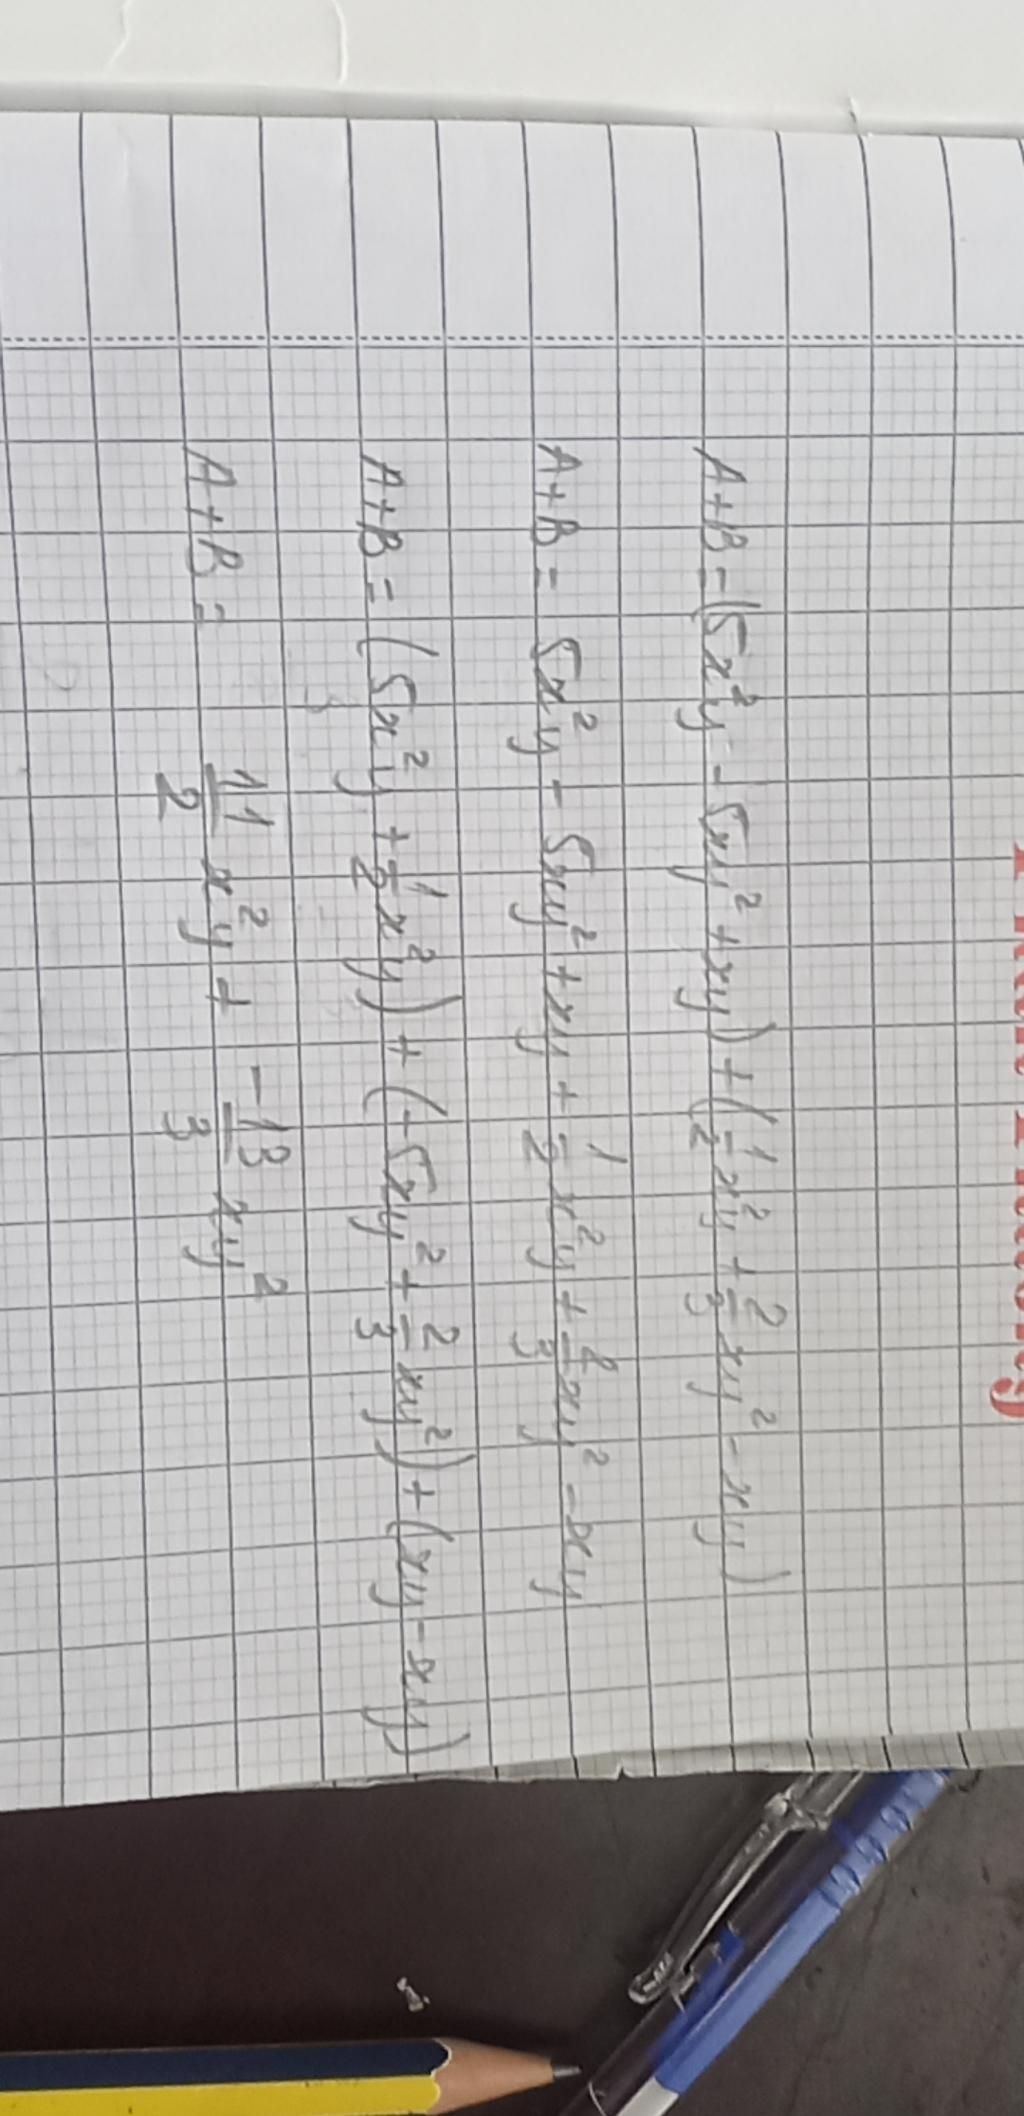 A+B=(5x²y-5xy²+xy)+(1/2x²y+2/3xy²-xy)
A+B= 5x²y-5xy²+xy+1/2x²y+2/3xy²-xy
A+B=(5x²y+1/2x²y)+(-5xy²+2/3xy²)+(xy-xy)
A+B= 11/2x²y+ -13/3xy²